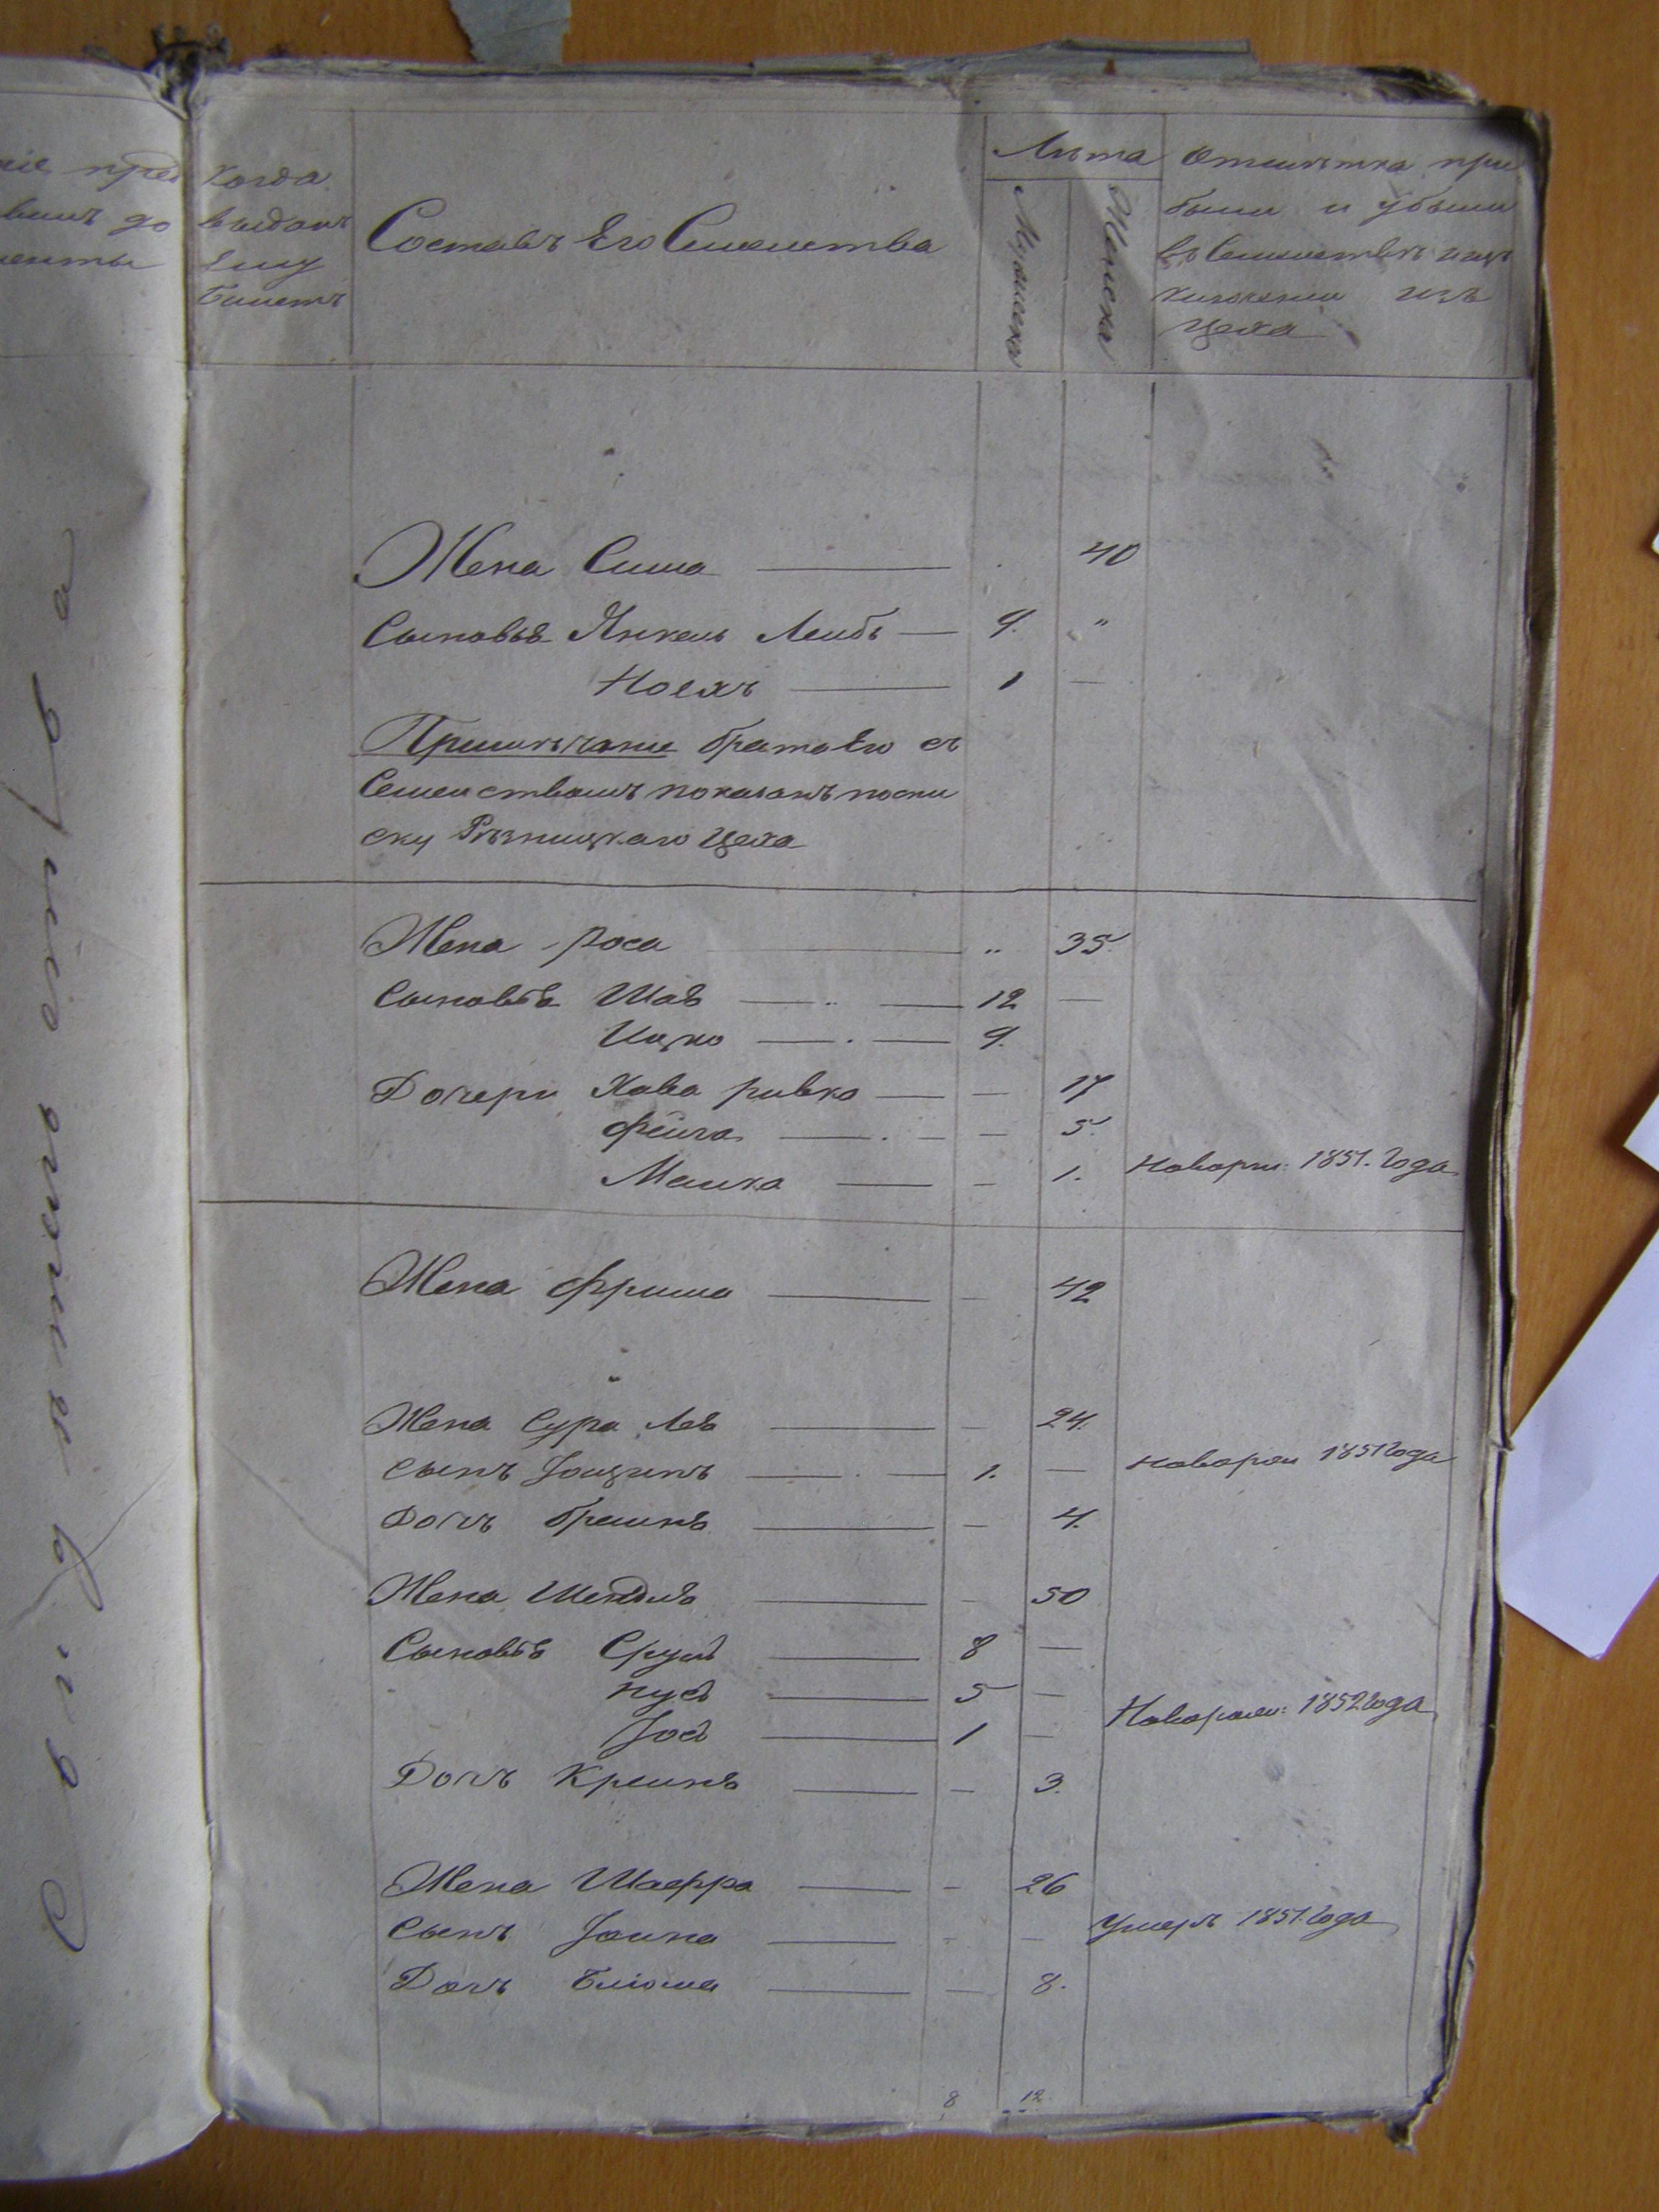 Когда
выданъ
Ему
Билетъ
Составъ Его Семейства
Лѣта
Мужеска
Женска
Отмѣтка при
были и убыли
въ Семействѣ и ис
ключении изъ
Цеха
Жена Сима 40
Сыновья Янкель Лейбъ 9. "
Ноехъ 1 —
Примѣчание брата Его съ
Семействомъ показанъ по спи
ску Рѣзницкаго Цеха
Жена Роса " 35.
Сыновья Шая 12 —
Ицко 9.
Дочери Хава ривка — 17
фейга — 5.
Малка — 1. Новорж: 1851. Года
Жена Фрима — 42
Жена Сура Лея — 24.
Сынъ — 1. — Новорож 1851 Года
Дочь брейна — 4.
Жена Шендля — 50
Сыновья Сруль 8 —
5 —
Іосъ 1 — Новорож: 1852 Года
Дочь Крейна — 3.
Жена Шифра — 26
Сынъ Іойна — — Умеръ 1851. Года
Дочь Блюма — 8.
8 12